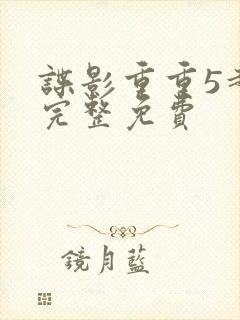 諜影重重5
完整免費
鏡月藍